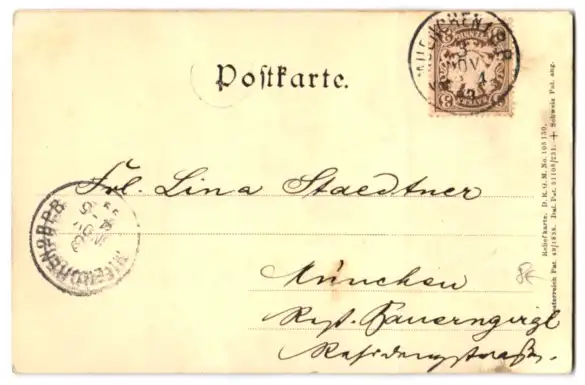 Postkarte.
BAYERN
3 NOV
Frl. Lina Staedtner
München
Rest. Bauerngirgl
Residenzstraße.
Reliefkarte. D. R. G. M. No. 108 130.
Oesterreich Pat. 49/1858. Ital. Pat. 51108/231. + Schweiz Pat. ang.